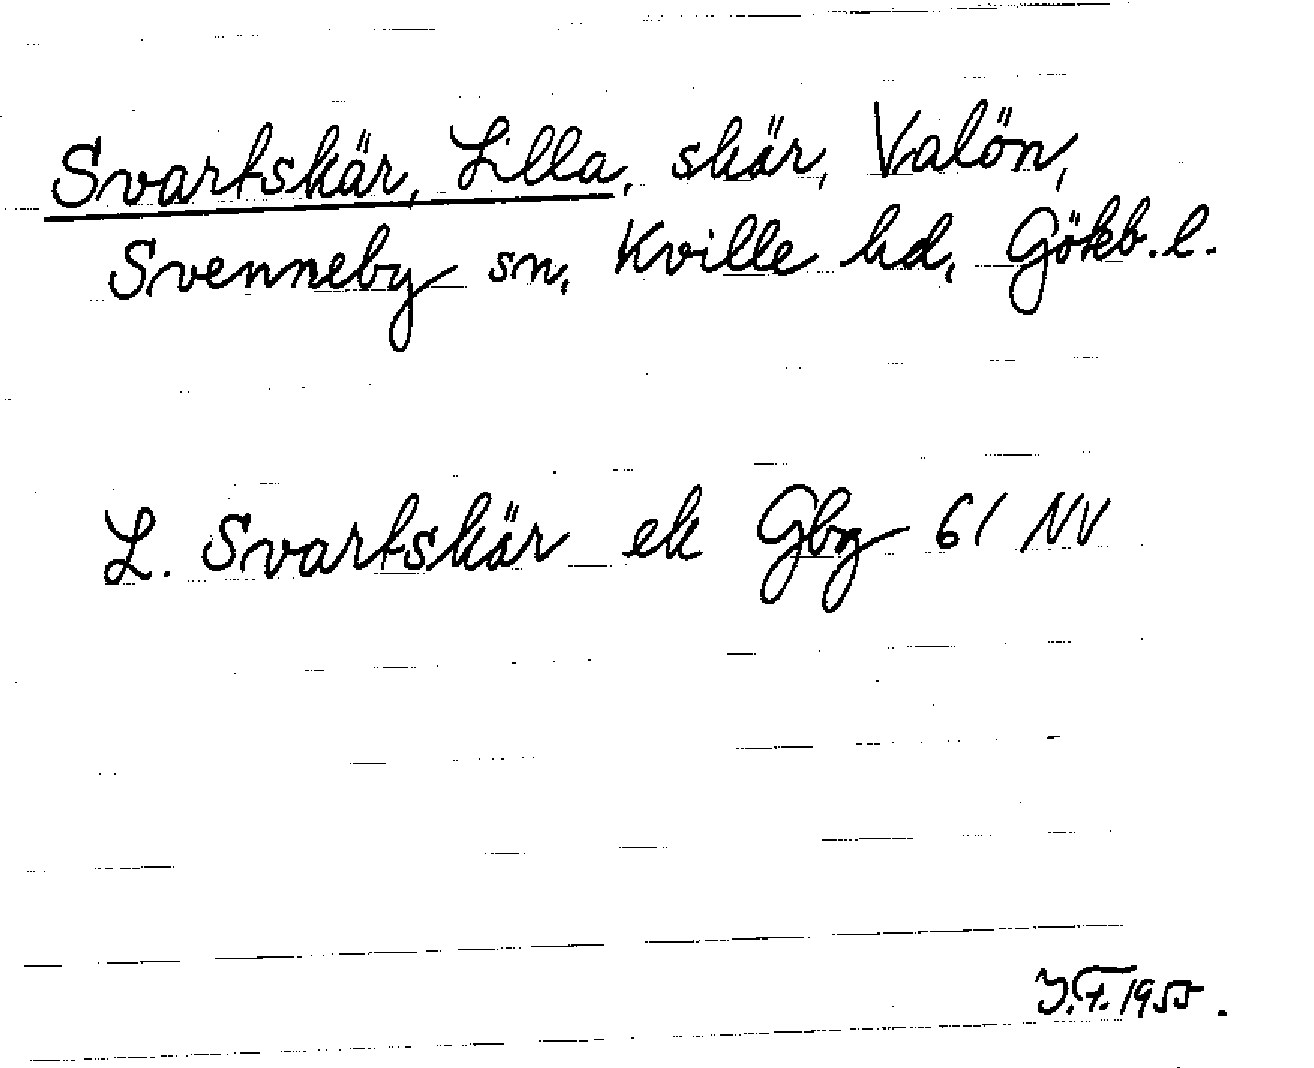 Svartskär, Lilla, skär, Valön,
Svenneby sn, Kville hd, Gökb. l.
L. Svartskär ek Gbg 61 NV
J.F. 1955.